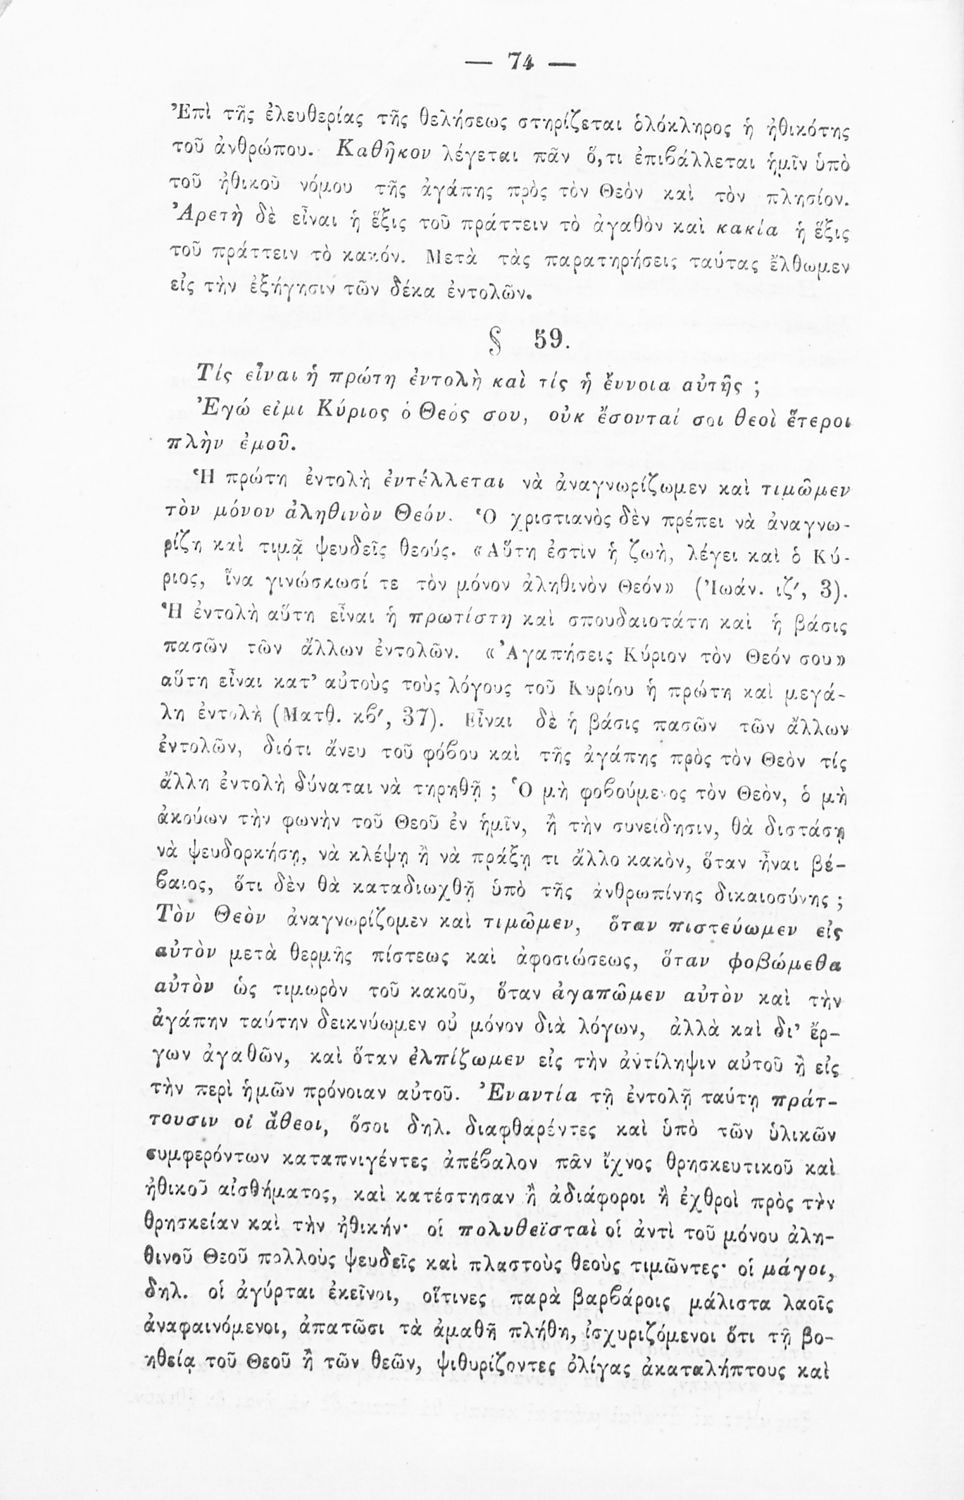 — 74 —
Ἐπὶ τῆς ἐλευθερίας τῆς θελήσεως στηρίζεται ὁλόκληρος ἡ ἠθικότης
τοῦ ἀνθρώπου. Καθῆκον λέγεται πᾶν ὅ,τι ἐπιβάλλεται ἡμῖν ὑπὸ
τοῦ ἠθικοῦ νόμου τῆς ἀγάπης πρὸς τὸν Θεὸν καὶ τὸν πλησίον.
Ἀρετὴ δὲ εἶναι ἡ ἕξις τοῦ πράττειν τὸ ἀγαθὸν καὶ κακία ἡ ἕξις
τοῦ πράττειν τὸ κακόν. Μετὰ τὰς παρατηρήσεις ταύτας ἔλθωμεν
εἰς τὴν ἐξήγησιν τῶν δέκα ἐντολῶν.
§ 59.
Τίς εἶναι ἡ πρώτη ἐντολὴ καὶ τίς ἡ ἔννοια αὐτῆς ;
Ἐγώ εἰμι Κύριος ὁ Θεός σου, οὐκ ἔσονταί σοι θεοὶ ἕτεροι
πλὴν ἐμοῦ.
Ἡ πρώτη ἐντολὴ ἐντέλλεται νὰ ἀναγνωρίζωμεν καὶ τιμῶμεν
τὸν μόνον ἀληθινὸν Θεόν. Ὁ χριστιανὸς δὲν πρέπει νὰ ἀναγνω-
ρίζῃ καὶ τιμᾷ ψευδεῖς θεούς. «Αὕτη ἐστὶν ἡ ζωὴ, λέγει καὶ ὁ Κύ-
ριος, ἵνα γινώσκωσί τε τὸν μόνον ἀληθινὸν Θεόν» (Ἰωάν. ιζ′, 3).
Ἡ ἐντολὴ αὕτη εἶναι ἡ πρωτίστη καὶ σπουδαιοτάτη καὶ ἡ βάσις
πασῶν τῶν ἄλλων ἐντολῶν. «Ἀγαπήσεις Κύριον τὸν Θεόν σου»
αὕτη εἶναι κατ’ αὐτοὺς τοὺς λόγους τοῦ Κυρίου ἡ πρώτη καὶ μεγά-
λη ἐντολὴ (Ματθ. κβ′, 37). Εἶναι δὲ ἡ βάσις πασῶν τῶν ἄλλων
ἐντολῶν, διότι ἄνευ τοῦ φόβου καὶ τῆς ἀγάπης πρὸς τὸν Θεὸν τίς
ἄλλη ἐντολὴ δύναται νὰ τηρηθῇ ; Ὁ μὴ φοβούμενος τὸν Θεὸν, ὁ μὴ
ἀκούων τὴν φωνὴν τοῦ Θεοῦ ἐν ἡμῖν, ἢ τὴν συνείδησιν, θὰ διστάσῃ
νὰ ψευδορκήσῃ, νὰ κλέψῃ ἢ νὰ πράξῃ τι ἄλλο κακὸν, ὅταν ἦναι βέ-
βαιος, ὅτι δὲν θὰ καταδιωχθῇ ὑπὸ τῆς ἀνθρωπίνης δικαιοσύνης ;
Τὸν Θεὸν ἀναγνωρίζομεν καὶ τιμῶμεν, ὅταν πιστεύωμεν εἰς
αὐτὸν μετὰ θερμῆς πίστεως καὶ ἀφοσιώσεως, ὅταν φοβώμεθα
αὐτὸν ὡς τιμωρὸν τοῦ κακοῦ, ὅταν ἀγαπῶμεν αὐτὸν καὶ τὴν
ἀγάπην ταύτην δεικνύωμεν οὐ μόνον διὰ λόγων, ἀλλὰ καὶ δι’ ἔρ-
γων ἀγαθῶν, καὶ ὅταν ἐλπίζωμεν εἰς τὴν ἀντίληψιν αὐτοῦ ἢ εἰς
τὴν περὶ ἡμῶν πρόνοιαν αὐτοῦ. Ἐναντία τῇ ἐντολῇ ταύτῃ πράτ-
τουσιν οἱ ἄθεοι, ὅσοι δηλ. διαφθαρέντες καὶ ὑπὸ τῶν ὑλικῶν
συμφερόντων καταπνιγέντες ἀπέβαλον πᾶν ἴχνος θρησκευτικοῦ καὶ
ἠθικοῦ αἰσθήματος, καὶ κατέστησαν ἢ ἀδιάφοροι ἢ ἐχθροὶ πρὸς τὴν
θρησκείαν καὶ τὴν ἠθικήν· οἱ πολυθεϊσταὶ οἱ ἀντὶ τοῦ μόνου ἀλη-
θινοῦ Θεοῦ πολλοὺς ψευδεῖς καὶ πλαστοὺς θεοὺς τιμῶντες· οἱ μάγοι,
δηλ. οἱ ἀγύρται ἐκεῖνοι, οἵτινες παρὰ βαρβάροις μάλιστα λαοῖς
ἀναφαινόμενοι, ἀπατῶσι τὰ ἀμαθῆ πλήθη, ἰσχυριζόμενοι ὅτι τῇ βο-
ηθείᾳ τοῦ Θεοῦ ἢ τῶν θεῶν, ψιθυρίζοντες ὀλίγας ἀκαταλήπτους καὶ